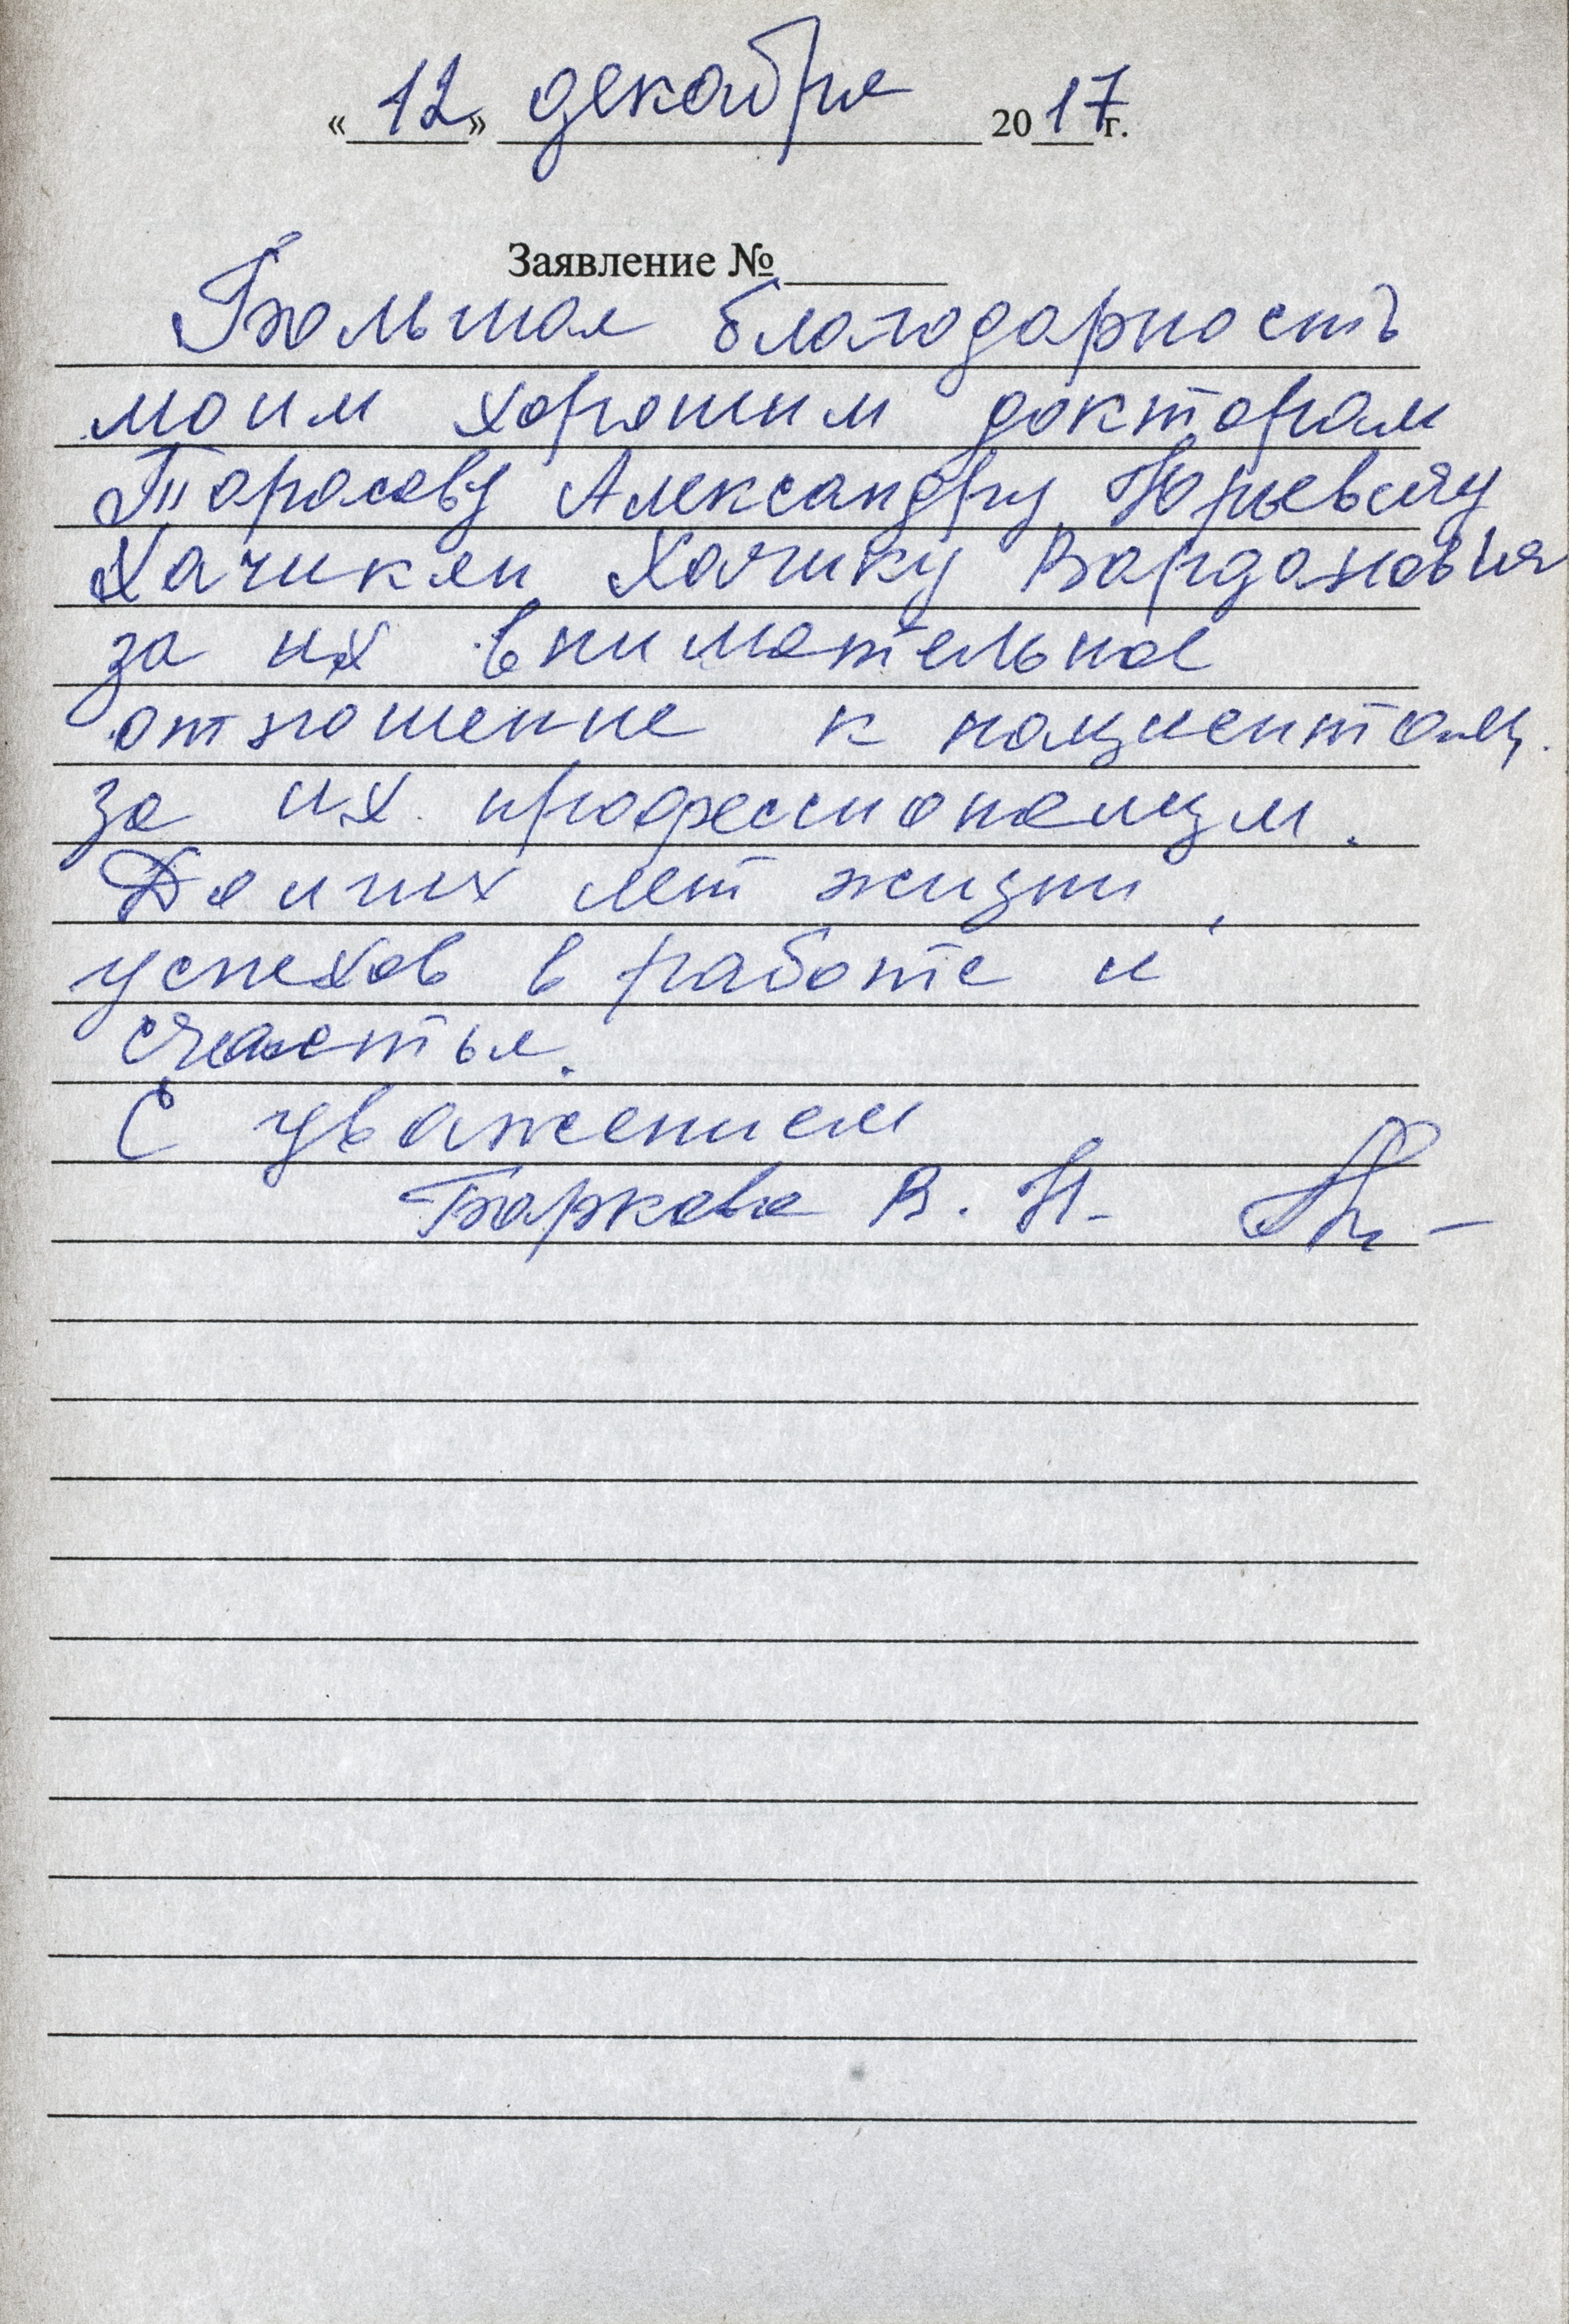 «12» декабря 2017 г.
Заявление №
Большая благодарность
моим хорошим докторам
Тарасову Александру Юрьевичу
Хачикян Хачику Варданович
за их внимательное
отношение к пациентам,
за их профессионализм.
Долгих лет жизни,
успехов в работе и
счастья.
С уважением
Баркова В. Н.